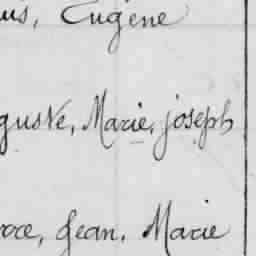 us, Eugène
guste, Marie, joseph
roce, Jean, Marie